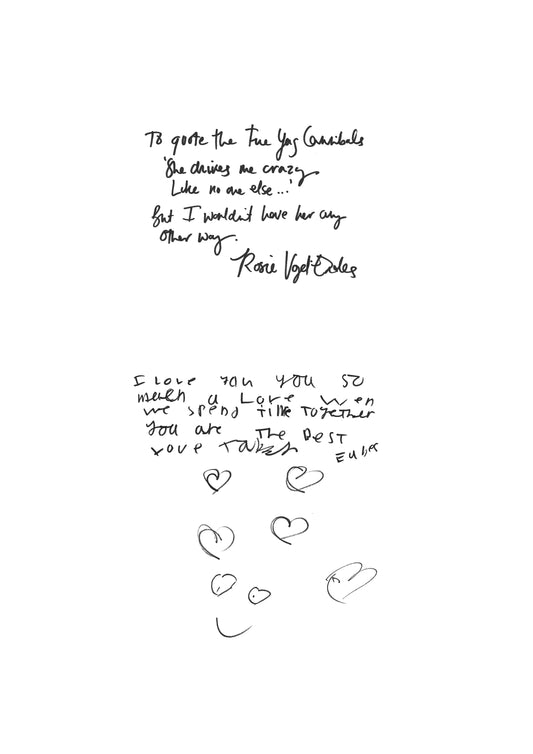 To quote the Fine Yng Cannibals
'She drives me crazy
Like no one else...'
But I wouldn't have her any
other way.
Rosie
I Love you you so
much a Love wen
we spend time Together
you are The best
Love